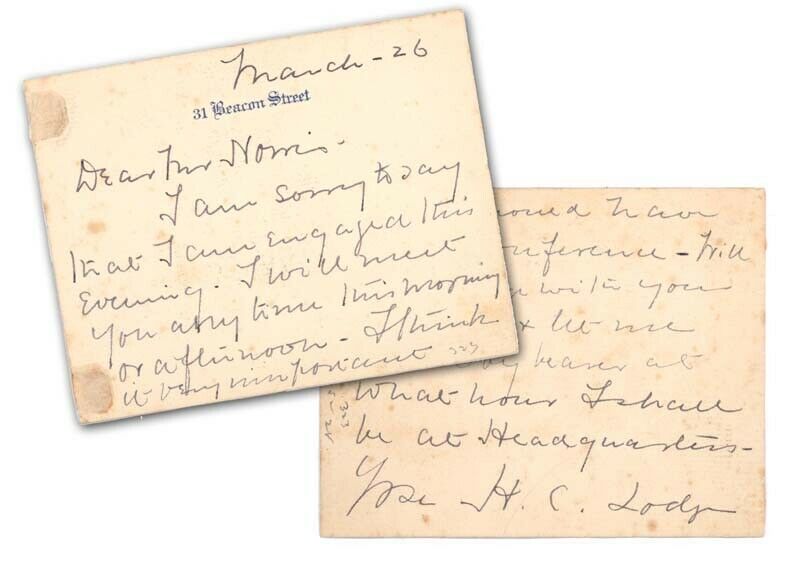 March - 26
31 Beacon Street
Dear Mr Norris -
I am sorry to say
that I am engaged this
evening. I will meet
you any time this morning
or afternoon - I think
it very important
223
would have
conference - Will
with you
& let me
by bearer at
what hour I shall
be at Headquarters -
H. C. Lodge